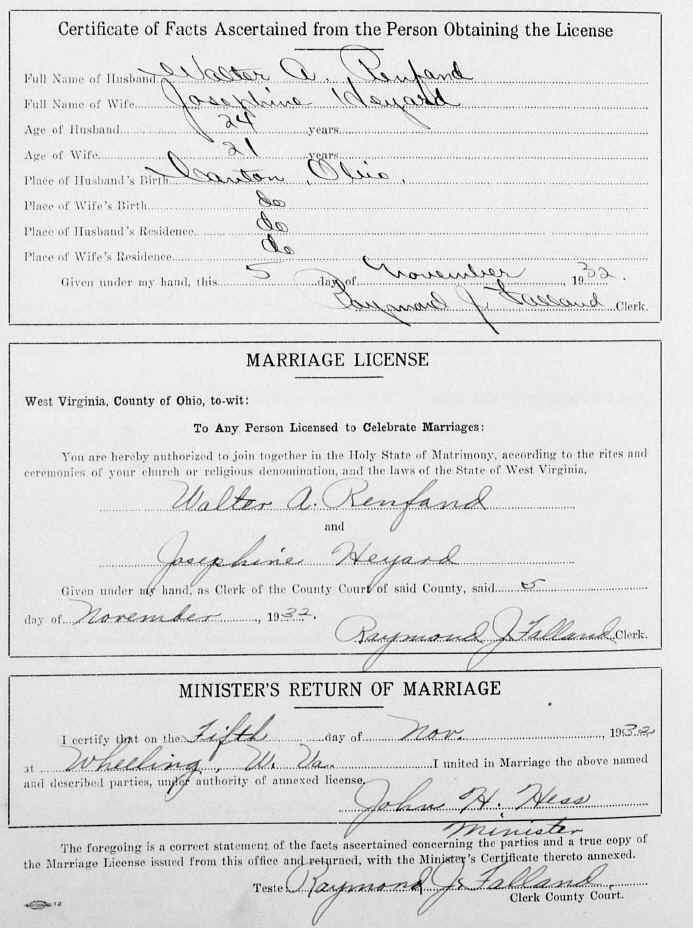 Certificate of Facts Ascertained from the Person Obtaining the License
Full Name of Husband Walter A. Renfand
Full Name of Wife Josephine Heyard
Age of Husband 24 years
Age of Wife 21 years
Place of Husband's Birth Canton, Ohio.
Place of Wife's Birth do
Place of Husband's Residence do
Place of Wife's Residence do
Given under my hand, this 5 day of November, 1932.
Raymond J. Falland Clerk.
MARRIAGE LICENSE
West Virginia, County of Ohio, to-wit:
To Any Person Licensed to Celebrate Marriages:
You are hereby authorized to join together in the Holy State of Matrimony, according to the rites and
ceremonies of your church or religious denomination, and the laws of the State of West Virginia,
Walter A. Renfand
and
Josephine Heyard
Given under my hand, as Clerk of the County Court of said County, said 5
day of November, 1932.
Raymond J. Falland, Clerk.
MINISTER'S RETURN OF MARRIAGE
I certify that on the Fifth day of Nov., 1932
at Wheeling, W. Va. I united in Marriage the above named
and described parties, under authority of annexed license.
John H. Hess
Minister
The foregoing is a correct statement of the facts ascertained concerning the parties and a true copy of
the Marriage License issued from this office and returned, with the Minister's Certificate thereto annexed.
Teste: Raymond J. Falland,
Clerk County Court.
12